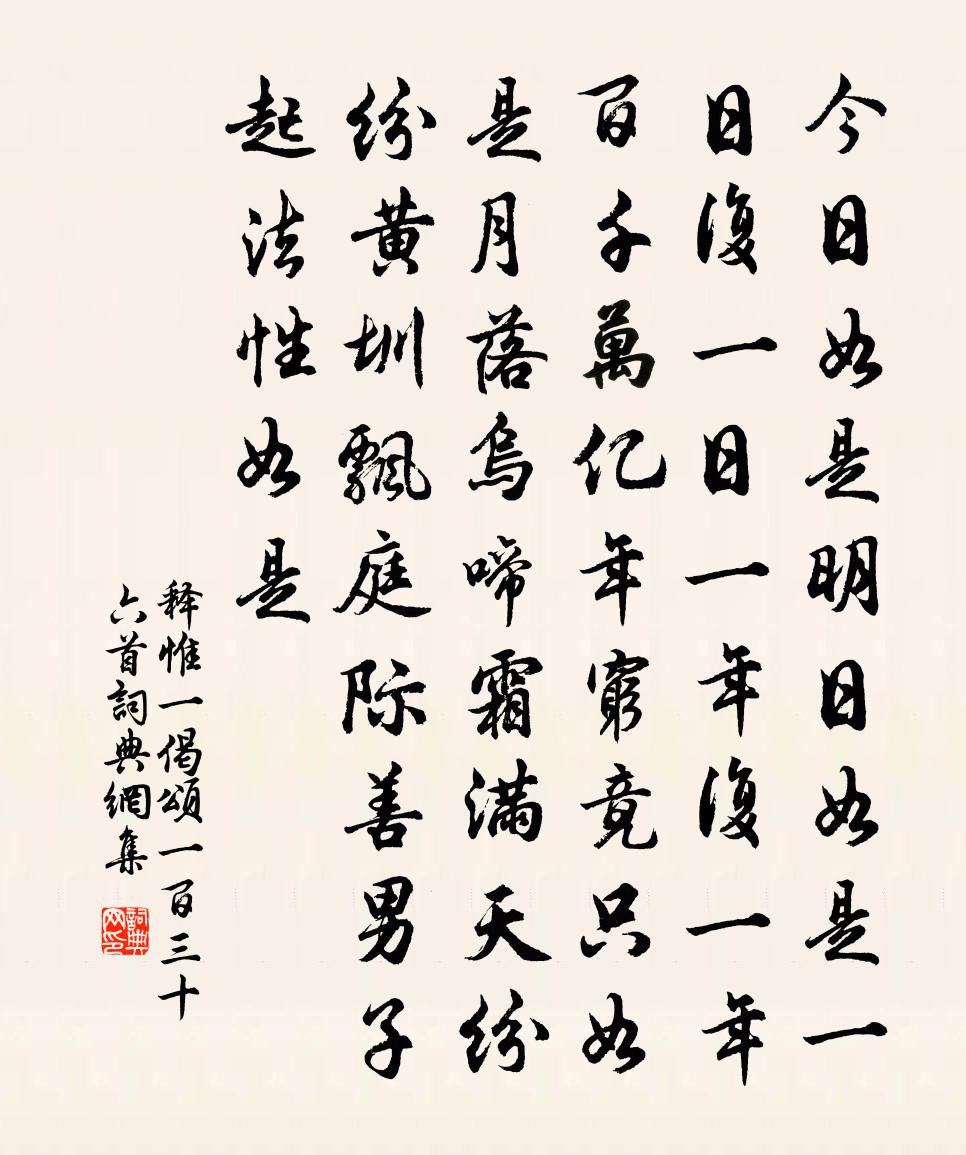 今日如是明日如是一
日復一日一年復一年
百千萬亿年窮竟只如
是月落烏啼霜滿天纷
纷黄圳飄庭际善男子
起法性如是
释惟一偈頌一百三十
六首詞典網集
詞典网印